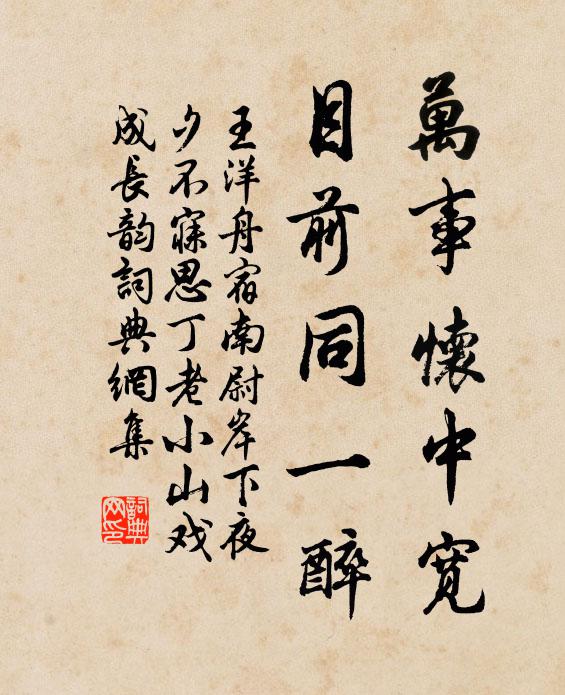 萬事懷中寬
目前同一醉
王洋舟宿南尉岸下夜
少不寐思丁老小山戏
成长韵詞典網集
詞典网印